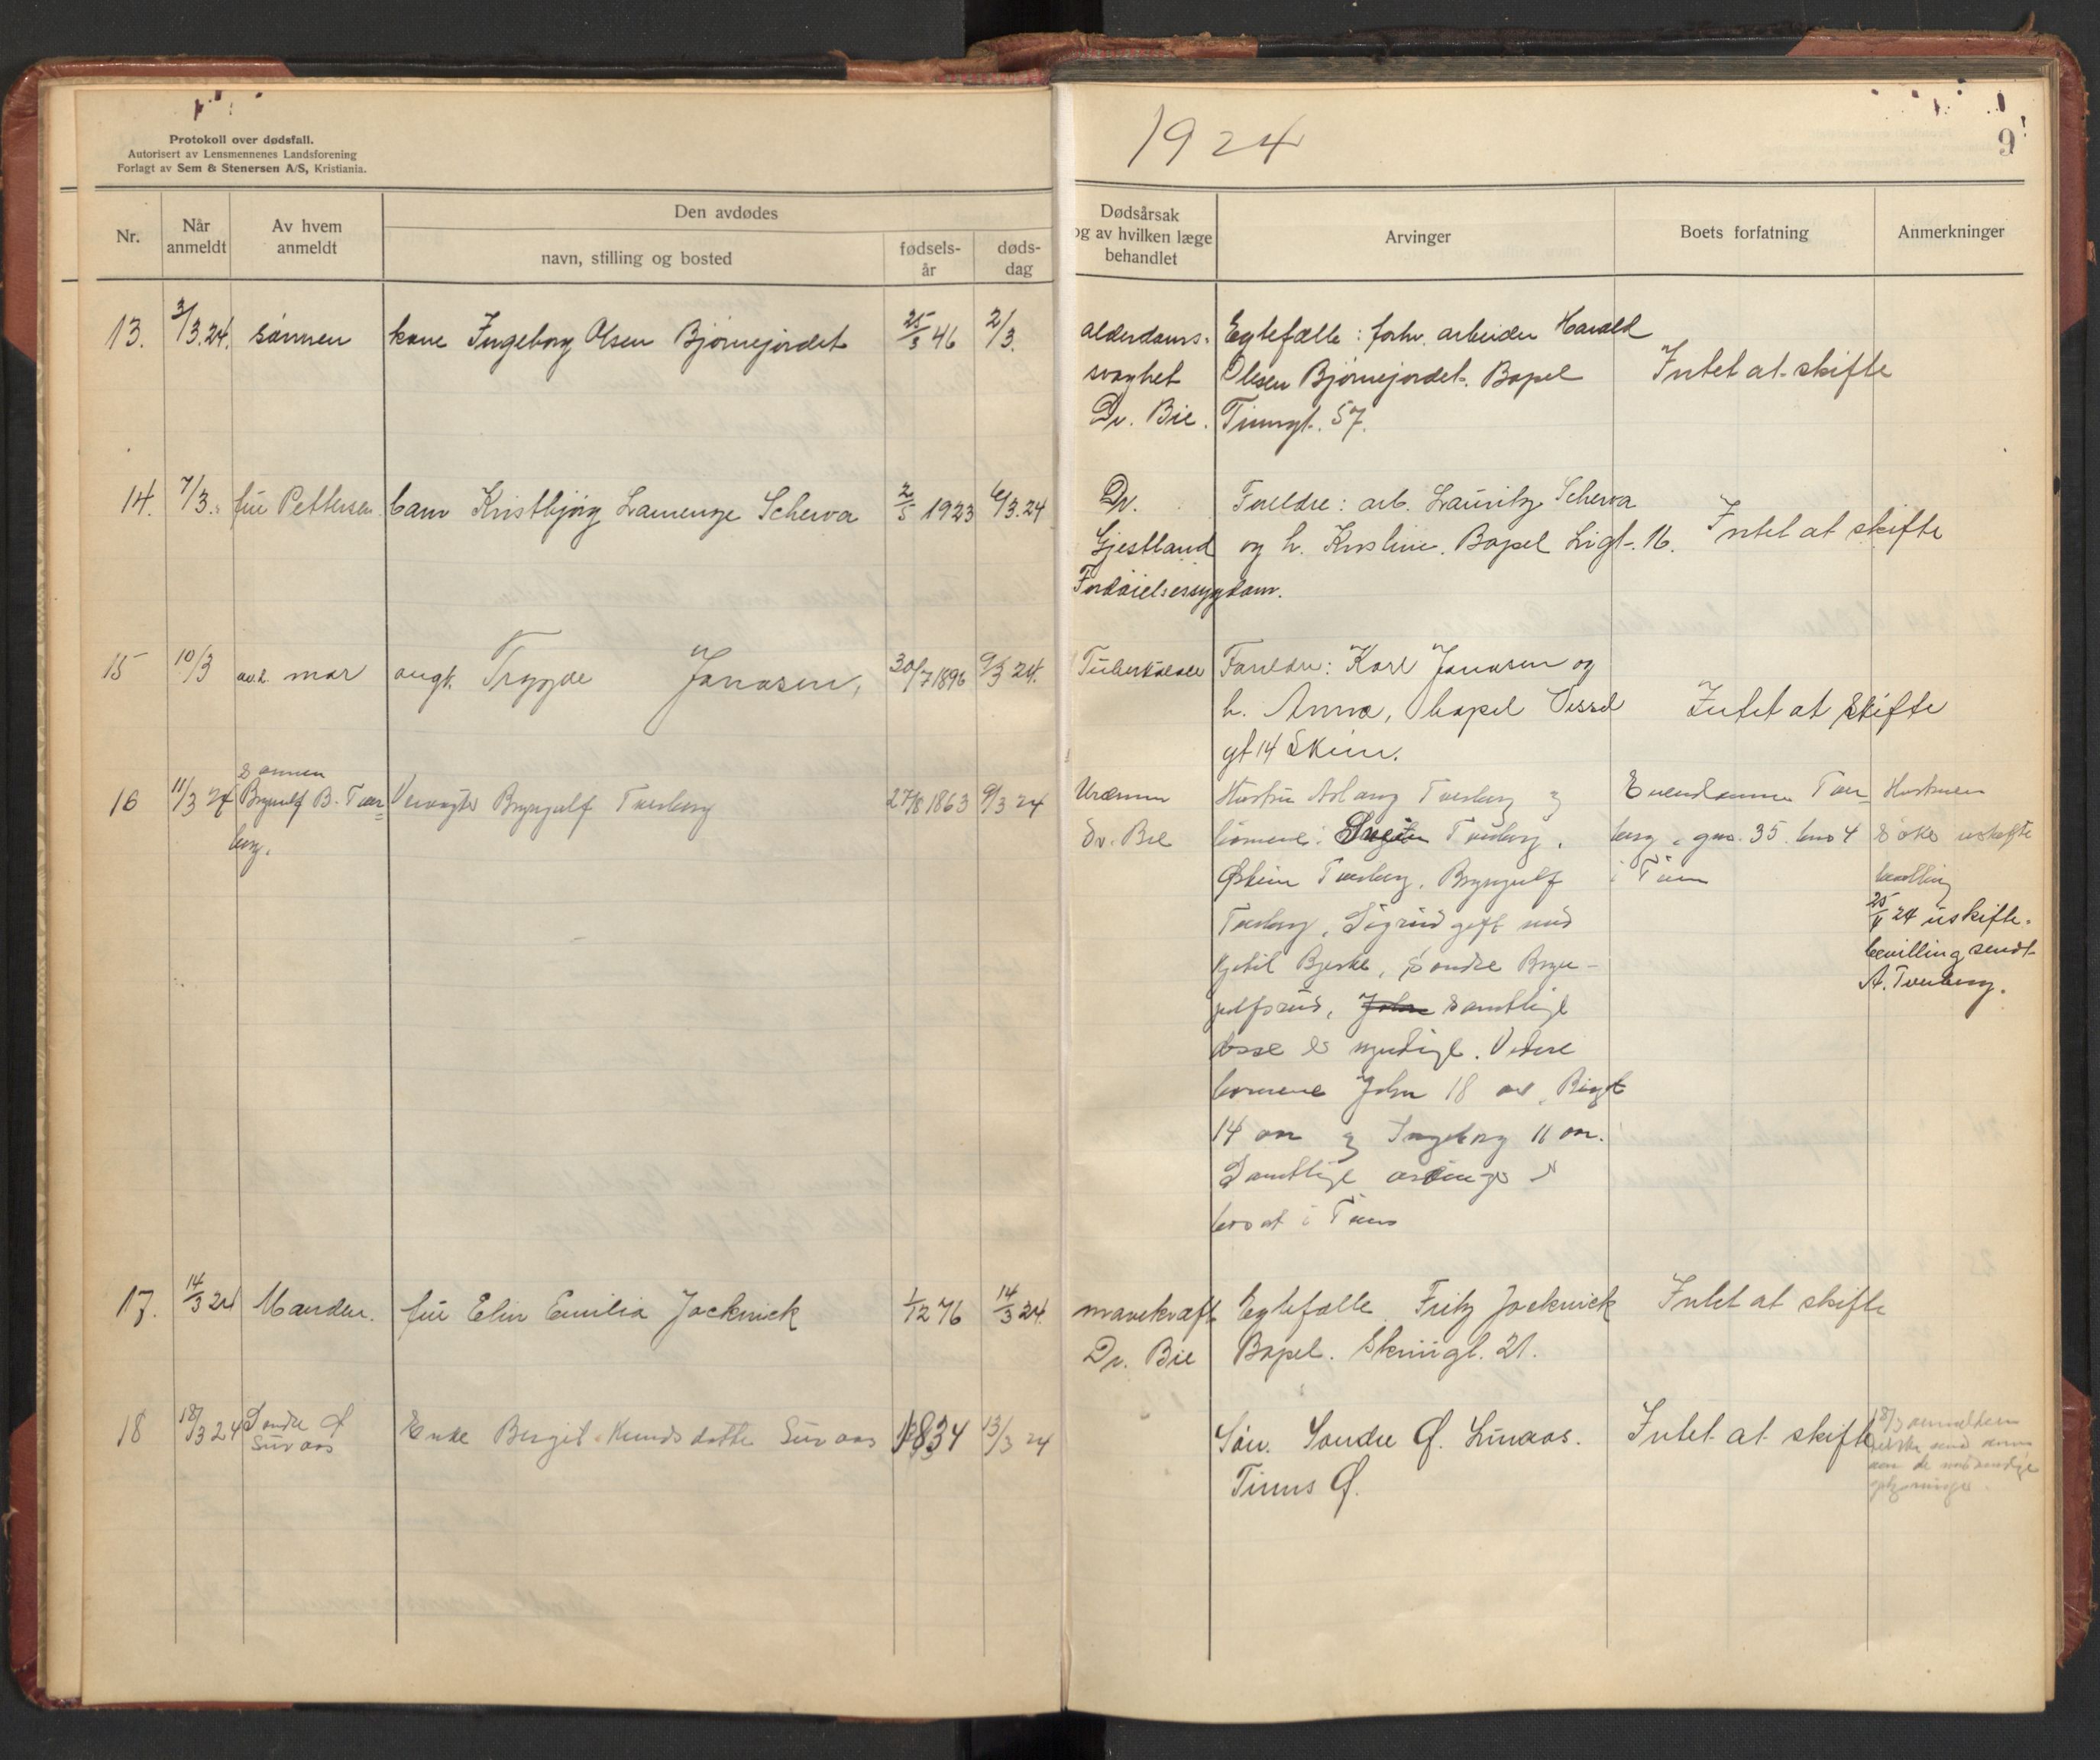 Protokoll over dødsfall.
Autorisert av Lensmennenes Landsforening
Forlagt av Sem & Stenersen A/S, Kristiania.
1924
9
Nr.
Når anmeldt
Av hvem anmeldt
Den avdødes
navn, stilling og bosted
fødsels-år
døds-dag
Dødsårsak
og av hvilken læge
behandlet
Arvinger
Boets forfatning
Anmerkninger
13. 3/3.24. sønnen kone Ingeborg Olsen Bjørnejordet 25/3 46 2/3.
alderdoms-
svaghet
Dr. Bie.
Egtefælle: forhv. arbeider Harald
Olsen Bjørnejordet. Bopel
Tinngt. 57.
Intet at skifte
14. 7/3. frü Pettersen barn Kristbjørg Schewa 2/5 1923 6/3.24
Dr.
Gjestland
Fordøielsessygdom.
Foreldre: arb. Lauritz Scherva
og h. Kristine. Bopel 16.
Intet at skifte
15 10/3 av.d. mor ungk. Trygve Jonasen, 30/7 1896 9/3 24.
Tuberkulose
Foreldre: Karl Jonasen og
h. Anna, bopel Vessel
gt 14 Skien.
Intet at skifte
16 11/3 24 Sønnen
Bryngulf B. Tver=
berg.
Bryngulf Tverberg 27/8 1863 9/3 24
Uræmi
Dr. Bie
Hustru Aslaug Tverberg og
børnene: Tverberg,
Østein Tverberg, Bryngulf
Tverberg, Sigrid gift med
Kjetil Bjerke, Søndre Bryn-
gulfsrud, John samtlige
disse er myndige. Videre
børnene John 18 aar, Birgit
14 aar og Ingeborg 11 aar.
Samtlige arvinger er
bosat i Tinn
Eiendommen Tver
berg, gno. 35 bno 4
i Tinn
Hustruen
søker uskifte
bevilling
25/4 24 uskifte-
bevilling sendt
A. Tverberg.
17. 14/3 24 Manden. frü Elin Emilia Jocknick 1/12 76 14/3 24.
mavekræft
Dr. Bie
Egtefælle Fritz Jocknick
Bopel. Skriugt. 21.
Intet at skifte
18 18/3 24 Sondre Ø
Enke Bergit Knudsdatter 1834 13/3 24
Søn. Sondre Ø.
Tinns Ø.
Intet at skifte
18/3 anmelderen
de nødvendige
oplysninger.